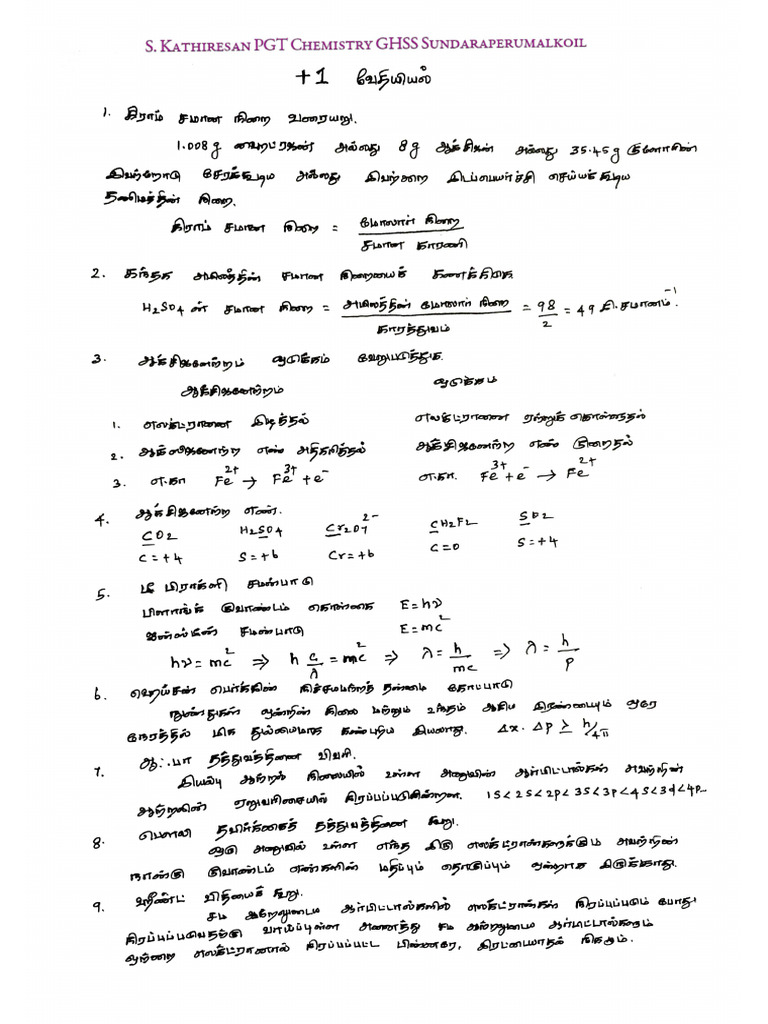 S. KATHIRESAN PGT CHEMISTRY GHSS SUNDARAPERUMALKOIL
+1 வேதியியல்
1. கிராம் சமான நிறை வரையறு.
1.008 g ஹைட்ரஜன் அல்லது 8g ஆக்சிஜன் அல்லது 35.45g குளோரின்
இவற்றோடு சேரக்கூடிய அல்லது இவற்றை இடப்பெயர்ச்சி செய்யக்கூடிய
தனிமத்தின் நிறை.
கிராம் சமான நிறை = மோலார் நிறை / சமான காரணி
2. கந்தக அமிலத்தின் சமான நிறையைக் கணக்கிடுக
H2SO4 ன் சமான நிறை = அமிலத்தின் மோலார் நிறை / காரத்துவம் = 98/2 = 49 கி.சமானம்⁻¹.
3. ஆக்சிஜனேற்றம் ஒடுக்கம் வேறுபடுத்துக.
ஆக்சிஜனேற்றம் ஒடுக்கம்
1. எலக்ட்ரானை இழத்தல் எலக்ட்ரானை ஏற்றுக் கொள்ளுதல்
2. ஆக்ஸிஜனேற்ற எண் அதிகரித்தல் ஆக்சிஜனேற்ற எண் குறைதல்
3. எ.கா Fe²⁺ → Fe³⁺ + e⁻ எ.கா. Fe³⁺ + e⁻ → Fe²⁺
4. ஆக்சிஜனேற்ற எண்.
CO2 H2SO4 Cr2O7²⁻ CH2F2 SO2
C = +4 S = +6 Cr = +6 C = 0 S = +4
5. டீ பிராக்ளி சமன்பாடு
பிளாங்க் குவாண்டம் கொள்கை E = hν
ஐன்ஸ்டீன் சமன்பாடு E = mc²
hν = mc² ⇒ h c/λ = mc² ⇒ λ = h/mc ⇒ λ = h/p
6. ஹெய்சன் பெர்க்கின் நிச்சயமற்றத் தன்மை கோட்பாடு
நுண்துகள் ஒன்றின் நிலை மற்றும் உந்தம் ஆகிய இரண்டையும் ஒரே
நேரத்தில் மிக துல்லியமாக கண்டறிய இயலாது. Δx . Δp ≥ h/4π
7. ஆஃபா தத்துவத்தினை விவரி.
இயல்பு ஆற்றல் நிலையில் உள்ள அணுவின் ஆர்பிட்டால்கள் அவற்றின்
ஆற்றலின் ஏறுவரிசையில் நிரப்பப்படுகின்றன. 1S<2S<2p<3S<3p<4S<3d<4p...
8. பௌலி தவிர்க்கைத் தத்துவத்தினை கூறு.
ஒரு அணுவில் உள்ள எந்த இரு எலக்ட்ரான்களுக்கும் அவற்றின்
நான்கு குவாண்டம் எண்களின் மதிப்பும் தொகுப்பும் ஒன்றாக இருக்காது.
9. ஹூண்ட் விதியைக் கூறு.
சம ஆற்றலுடைய ஆர்பிட்டால்களில் எலக்ட்ரான்கள் நிரப்பப்படும் போது
நிரப்பப்படுவதற்கு வாய்ப்புள்ள அனைத்து சம ஆற்றலுடைய ஆர்பிட்டால்களும்
ஒற்றை எலக்ட்ரானால் நிரப்பப்பட்ட பின்னரே, இரட்டையாதல் நிகழும்.